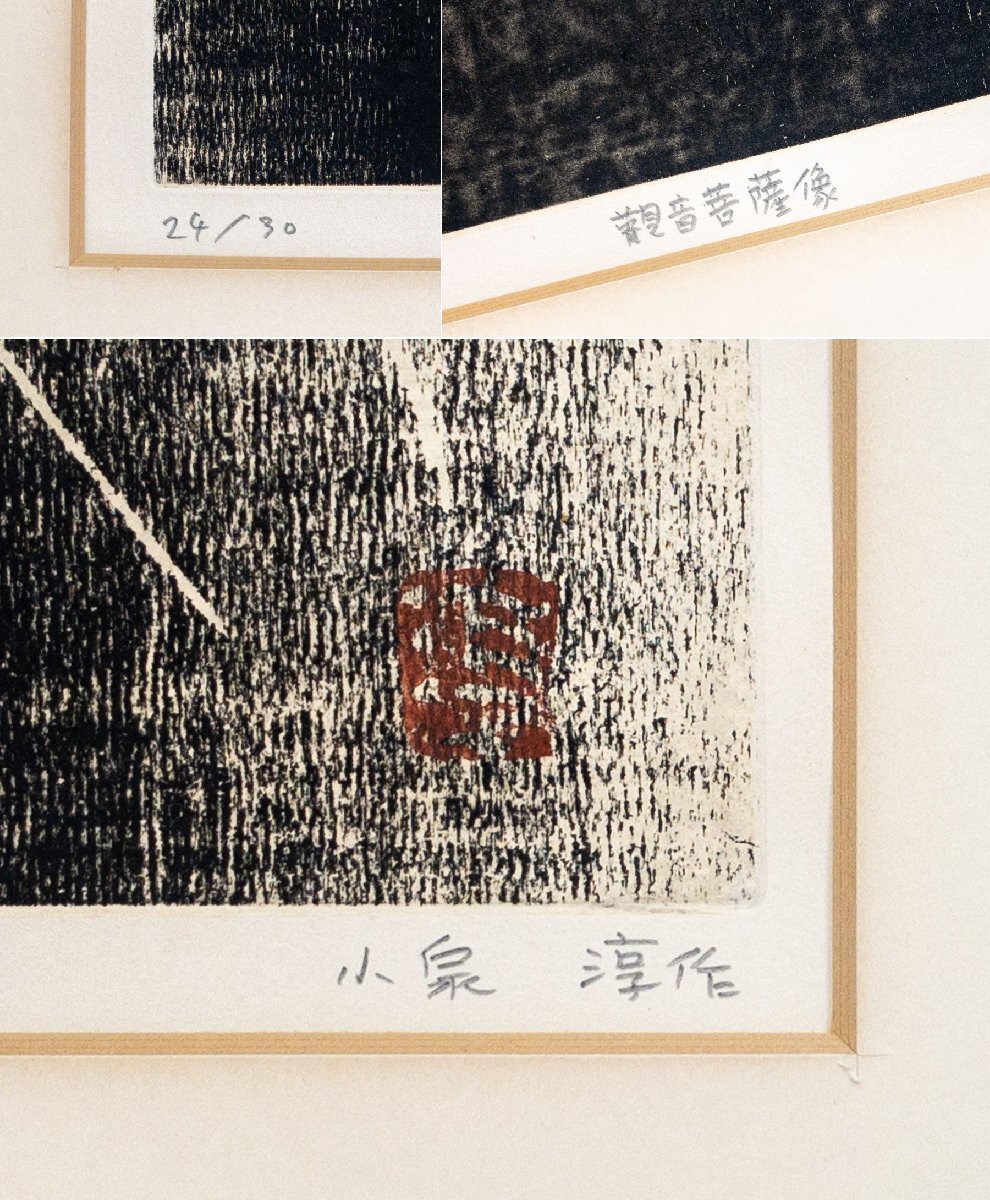 24/30
觀音菩薩像
小泉 淳作